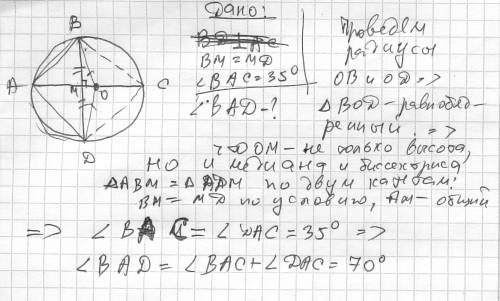 Дано:
B
A
M
O
C
D
BM = MD
∠BAC = 35°
∠BAD - ?
Проведём
радиусы
OB и OD =>
△BOD - равнобед-
ренный. =>
OM - не только высота,
но и медиана и биссектриса,
△ABM = △ADM по двум катетам:
BM = MD по условию, AM - общий
=> ∠BAC = ∠DAC = 35° =>
∠BAD = ∠BAC + ∠DAC = 70°